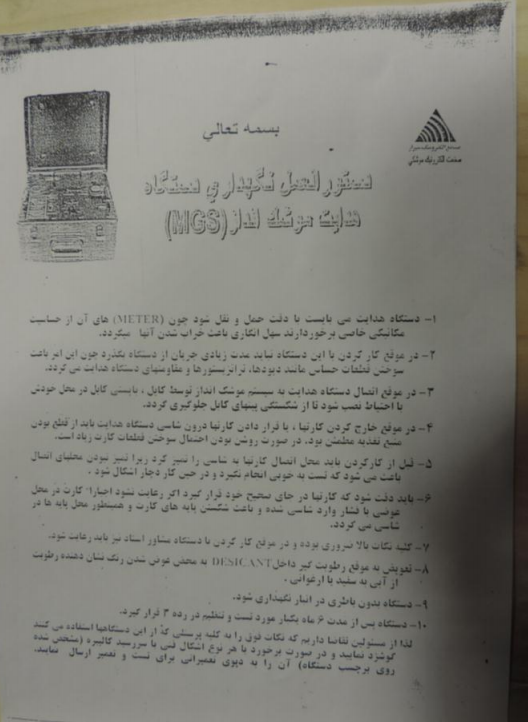 بسمه تعالي
صنايع الکترونيک شيراز
صنعت الکترونيک موشکي
دستور العمل نگهداري دستگاه
هدايت موشك انداز (MGS)
۱- دستگاه هدايت مي بايست با دقت حمل و نقل شود چون (METER) هاي آن از حساسيت
مکانيکي خاصي برخوردارند سهل انکاري باعث خراب شدن آنها ميگردد.
۲- در موقع کار کردن با اين دستگاه نبايد مدت زيادي جريان از دستگاه بگذرد چون اين امر باعث
سوختن قطعات حساس مانند ديودها، ترانزيستورها و مقاومتهاي دستگاه هدايت مي گردد.
۳- در موقع اتصال دستگاه هدايت به سيستم موشک انداز توسط کابل ، بايستي کابل در محل خودش
با احتياط نصب شود تا از شکستگي پينهاي کابل جلوگيري گردد.
۴- در موقع خارج کردن کارتها ، يا قرار دادن کارتها درون شاسي دستگاه هدايت بايد از قطع بودن
منبع تغذيه مطمئن بود. در صورت روشن بودن احتمال سوختن قطعات کارت زياد است.
۵- قبل از کارکردن بايد محل اتصال کارتها به شاسي را تميز کرد زيرا تميز نبودن محلهاي اتصال
باعث مي شود که تست به خوبي انجام نگيرد و در حين کار دچار اشکال شود .
۶- بايد دقت شود که کارتها در جاي صحيح خود قرار گيرد اگر رعايت نشود اجبارا" کارت در محل
عوضي با فشار وارد شاسي شده و باعث شکستن پايه هاي کارت و همينطور محل پايه ها در
شاسي مي گردد.
۷- کليه نکات بالا ضروري بوده و در موقع کار کردن با دستگاه مشاور استاد نيز بايد رعايت شود.
۸- تعويض به موقع رطوبت گير داخل DESICANT به محض عوض شدن رنگ نشان دهنده رطوبت
از آبي به سفيد يا ارغواني .
۹- دستگاه بدون باطري در انبار نگهداري شود.
۱۰- دستگاه پس از مدت ۶ ماه يکبار مورد تست و تنظيم در رده ۳ قرار گيرد.
لذا از مسئولين تقاضا داريم که نکات فوق را به کليه پرسنلي که از اين دستگاهها استفاده مي کنند
گوشزد نمايند و در صورت برخورد با هر نوع اشکال فني يا سررسيد کاليبره (مشخص شده
روي برچسب دستگاه) آن را به دپوي تعميراتي براي تست و تعمير ارسال نمايند.